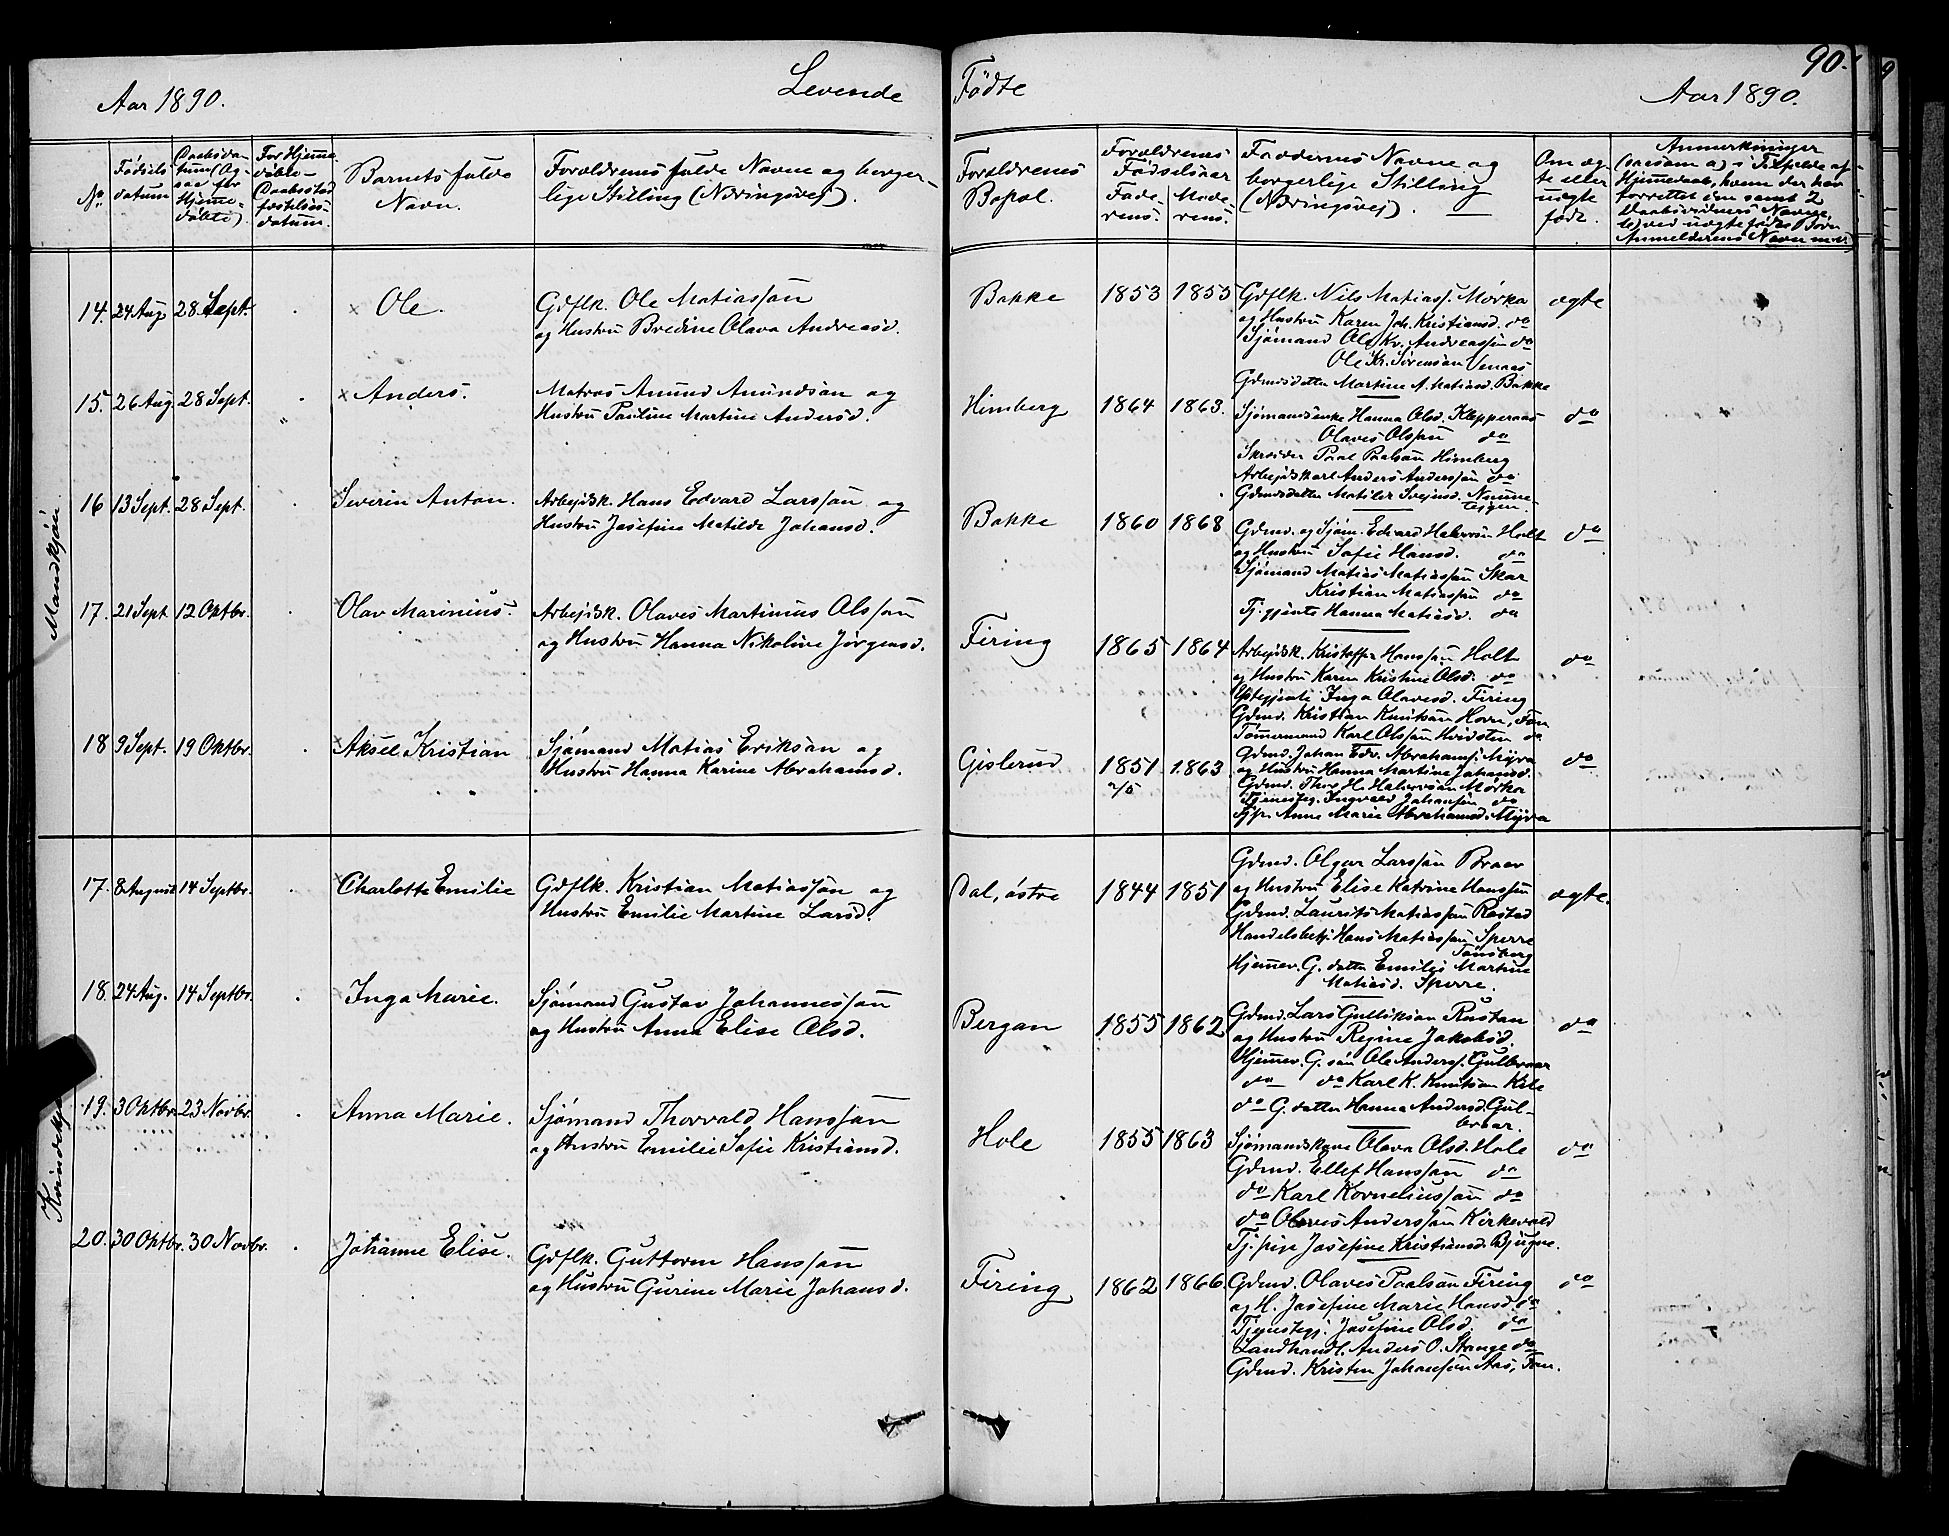 90.
Aar 1890.
Levende
Födte
Aar 1890.
No
Fødsels
datum
Daabsda-
tum (Og-
saa for
Hjemme-
döbte).
For Hjemme-
döbte
Daabsstad-
fæstelses-
datum.
Barnets fulde
Navn.
Forældrenes fulde Navne og borger-
lige Stilling (Næringsvej).
Forældrenes
Bopæl.
Forældrenes
Fødselsaar
Fade-
rens.
Mode-
rens.
Faddernes Navne og
borgerlige Stilling
(Næringsvej).
Om æg-
te eller
uægte
født.
Anmærkninger
Hjemmedaab, hvem der har
forrettet den samt 2
Daabsvidners Navne,
b) ved uægte fødte Børn
Anmelderens Navn m.v.)
Mandkjön
14. 24 Aug 28. Sept. Ole.
Gdflk. Ole Matiassøn
og Hustru Bredine Olava Andreasd.
Bakke 1853 1855
Gdflk. Nils Matiass. Mørka
og Hustru Karen Joh. Kristiansd. do
Sjømand Ole Kr. Andreassøn do
Ole Kr. Sørensøn Venaas
Gdmdsdatter Martine A. Matiasd. Bakke
ægte
15. 26 Aug. 28 Sept. Anders.
Matros Amund Amundsøn og
Hustru Pauline Martine Andersd.
Himberg 1864 1863.
Sjømandsenke Hanna Olsd. Klepperaas
Olaves Olssøn do
Skræder Paal Paalsøn Himberg
Arbejdskarl Anders Anderssøn do
Gdmdsdatter Matilde Svejnsd.
do
16 13 Sept. 28 Sept. Severin Anton.
Arbejdsk. Hans Edvard Larssøn og
Hustru Josefine Matilde Johansd.
Bakke 1860 1868
Gdmd. og Sjøm. Edvard Halvorsøn Holt
og Hustru Sofie Hansd. do
Sjømand Matias Matiassøn Skar
Kristian Matiassøn do
Tj.gjente Hanna Matiasd. do
do
17. 21 Sept 12 Oktbr. Olav Marinius.
Arbejdsk. Olaves Martinius Olssøn
og Hustru Hanna Nikoline Jørgensd.
Firing 1865 1864
Arbejdsk. Kristoffer Hanssøn Holt
og Hustru Karen Kristine Olsd. do
Inga Olavesd. Firing
Gdmd. Kristian Knutsøn Horn, Fon
Tømmermand Karl Olssøn Hvidsten do
do
18 9 Sept. 19 Oktbr. Aksel Kristian
Sjømand Matias Eriksøn og
Hustru Hanna Karine Abrahamsd.
Gislerud 1851 1863
2/5
Gdmd. Johan Edv. Abrahams. Myra
og Hustru Hanna Martine Johansd.
Gdmd. Thor H. Halvorsøn Mørka
Tjenestegj. Ingvald Johansøn do
Tjp. Anne Marie Abrahamsd. Myra
do
Kvindekjön
17. 8 August 14 Septbr. Charlotte Emilie
Gdflk. Kristian Matiassøn og
Hustru Emilie Martine Larsd.
Dal, östre 1844 1851
Gdmd. Olgar Larssøn Braar
og Hustru Elise Katrine Hanssøn
Gdmd. Laurits Matiassøn Rastad
Handelsbetj. Hans Matiassøn Sperre
Tønsberg
Hjemmev. G. datter Emilie Martine
Matiasd. Sperre.
ægte.
18. 24 Aug. 14 Septbr. Inga Marie.
Sjømand Gustav Johannessøn
og Hustru Anna Elise Olsd.
Bergan 1855 1862
Gdmd. Lars Gulliksøn Rustan
og Hustru Regine Jakobsd.
Hjemmev. G. søn Ole Anderss. Gulbraar
do do Karl K. Knutsøn Kile
do G. datter Hanna Andersd. Gul-
braar.
do
19. 3 Oktbr. 23 Novbr. Anna Marie.
Sjømand Thorvald Hanssøn
og Hustru Emilie Sofie Kristiansd.
Hole 1855 1863
Sjømandskone Olava Olsd. Hole
Gdmd. Ellef Hanssøn do
do Karl Korneliussøn do
do Olaves Anderssøn Kirkevold
Tj.pige Josefine Kristiansd. Bjugne.
do
20. 30 Oktbr. 30 Novbr. Johanne Elise.
Gdflk. Guttorm Hanssøn
og Hustru Gurine Marie Johansd.
Firing 1862 1866
Gdmd. Olaves Paalsøn Firing
og H. Josefine Marie Hansd. do
Tjenestegj. Josefine Olsd. do
Landhandl. Anders O. Stange do
Gdmd. Kristen Johansøn Aas, Fon.
do